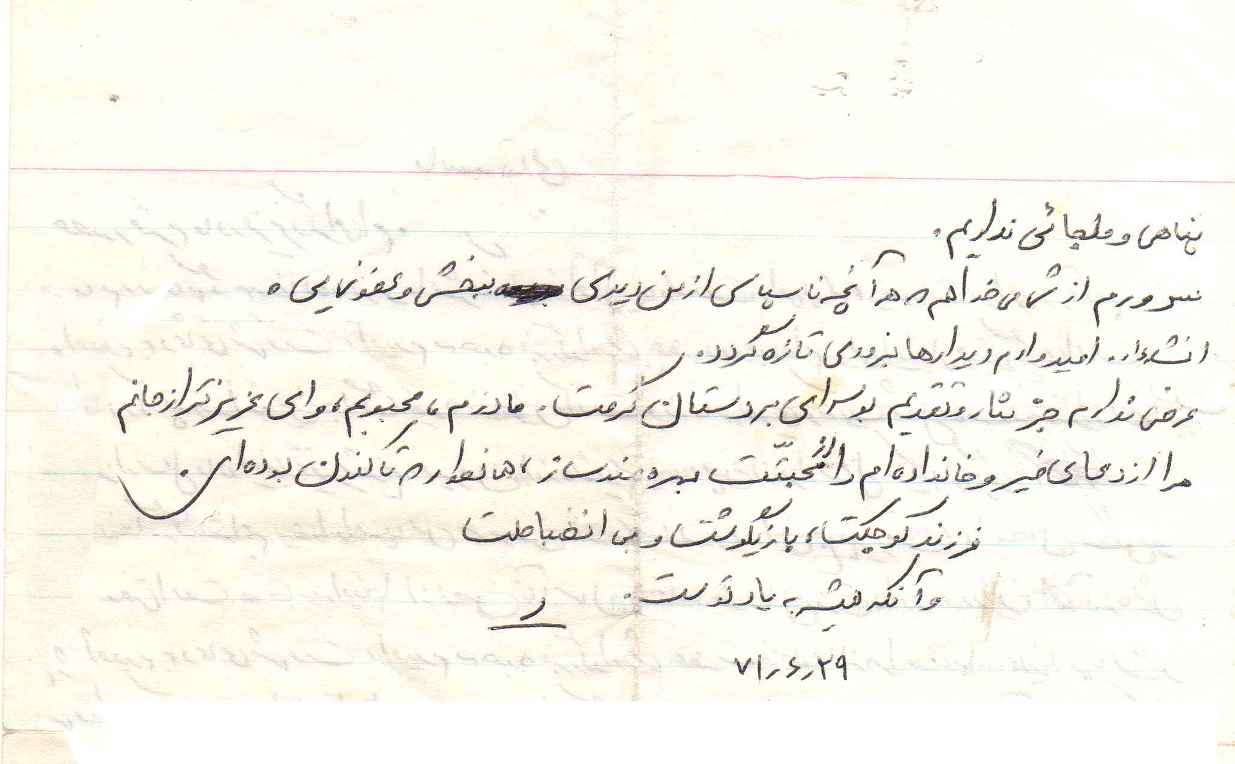 پناهی و ملجائی نداریم.
سرورم از شما می‌خواهم هر آنچه ناسپاسی از من دیدی ببخش و عفو نمایی.
انشاءا... امیدوارم دیدارها بزودی تازه گردد.
عرضی ندارم جز نثار و تقدیم بوسه‌ای بر دستان گرمت. مادرم، محبوبم، و ای عزیزتر از جانم
مرا از دعای خیر و خانواده‌ام را از محبتت بهره‌مند ساز، همانطوار که تاکنون بوده‌ای.
فرزند کوچکت، بازیگوشت و بی انضباطت
و آنکه همیشه به یاد توست.
ر
۷۱٫۶٫۲۹